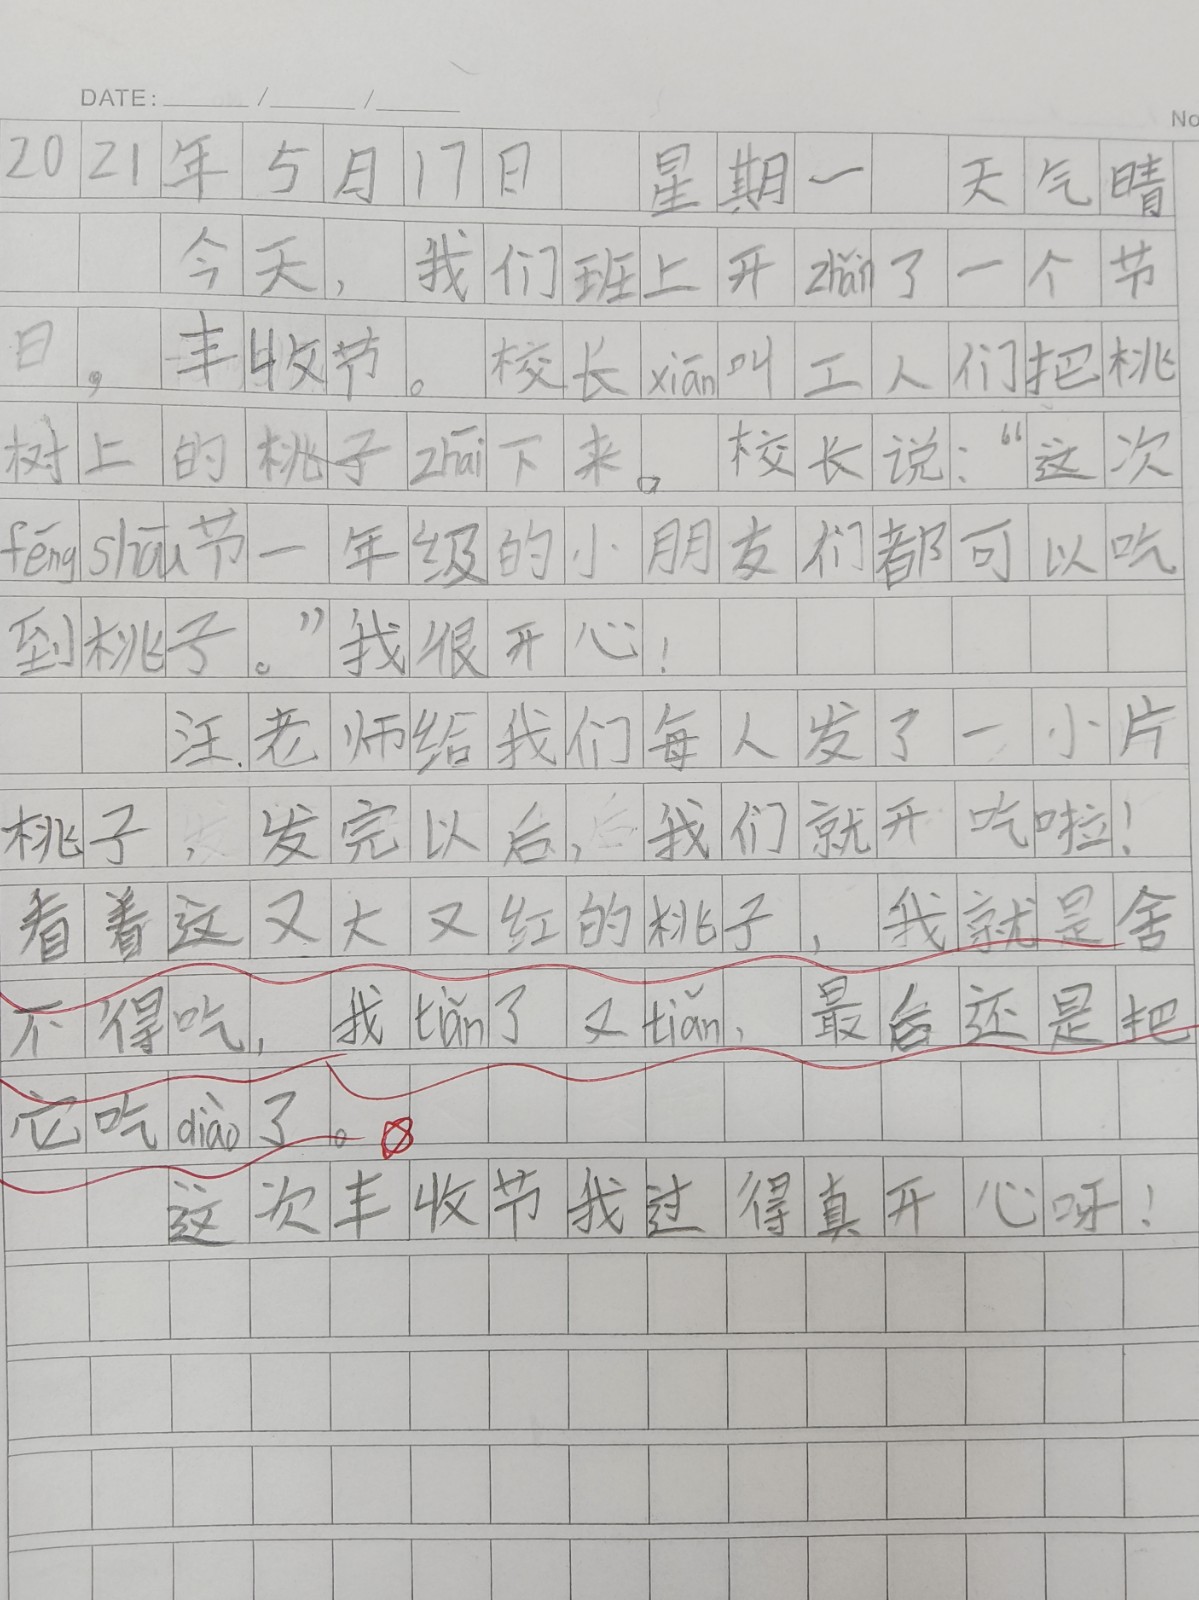 DATE: / /
No
2021年5月17日 星期一 天气晴
今天，我们班上开zhǎn了一个节
日，丰收节。校长xiān叫工人们把桃
树上的桃子zhāi下来。校长说：“这次
fēng shōu节一年级的小朋友们都可以吃
到桃子。”我很开心！
汪老师给我们每人发了一小片
桃子，发完以后，我们就开吃啦！
看着这又大又红的桃子，我就是舍
不得吃，我tiǎn了又tiǎn，最后还是把
它吃diào了。
这次丰收节我过得真开心呀！